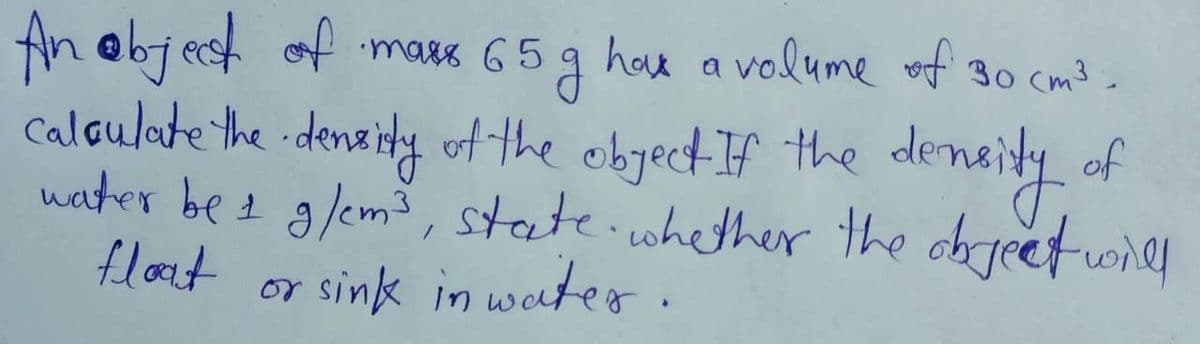 An object of mass 65 g has a volume of 30 cm³.
Calculate the density of the object If the density of
water be 1 g/cm³, state whether the object will
float or sink in water.